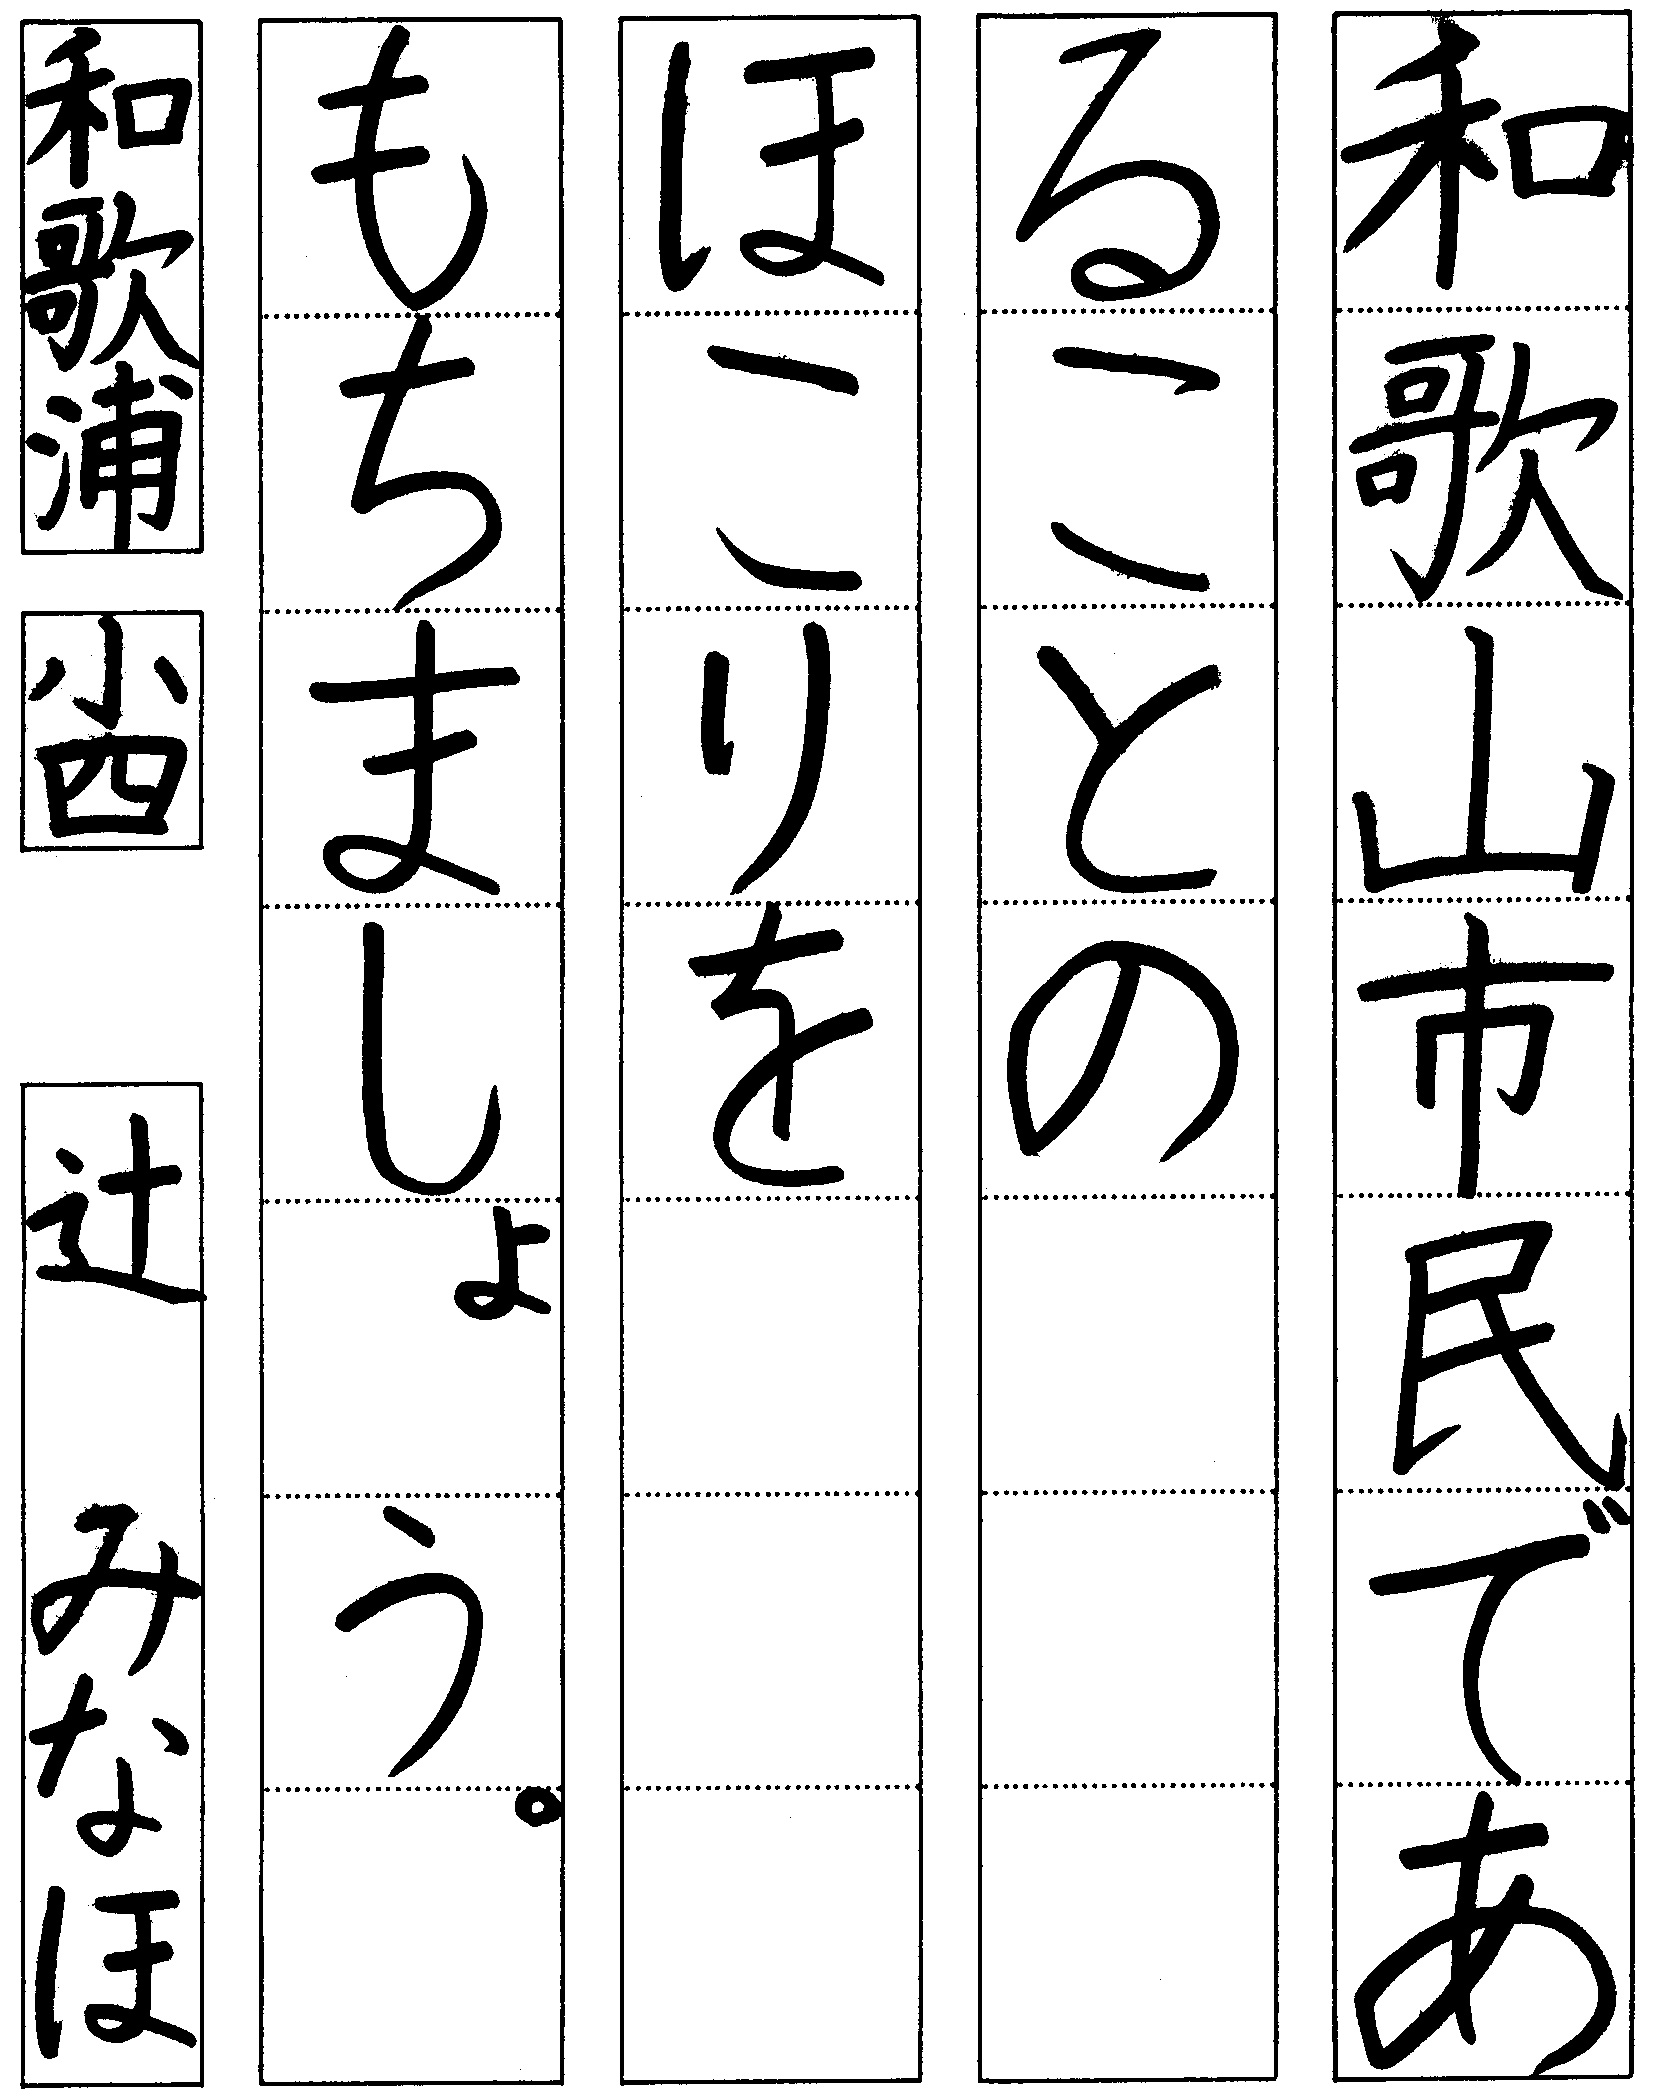 和歌山市民であ
ることの
ほこりを
もちましょう。
和歌浦 小四 辻 みなほ